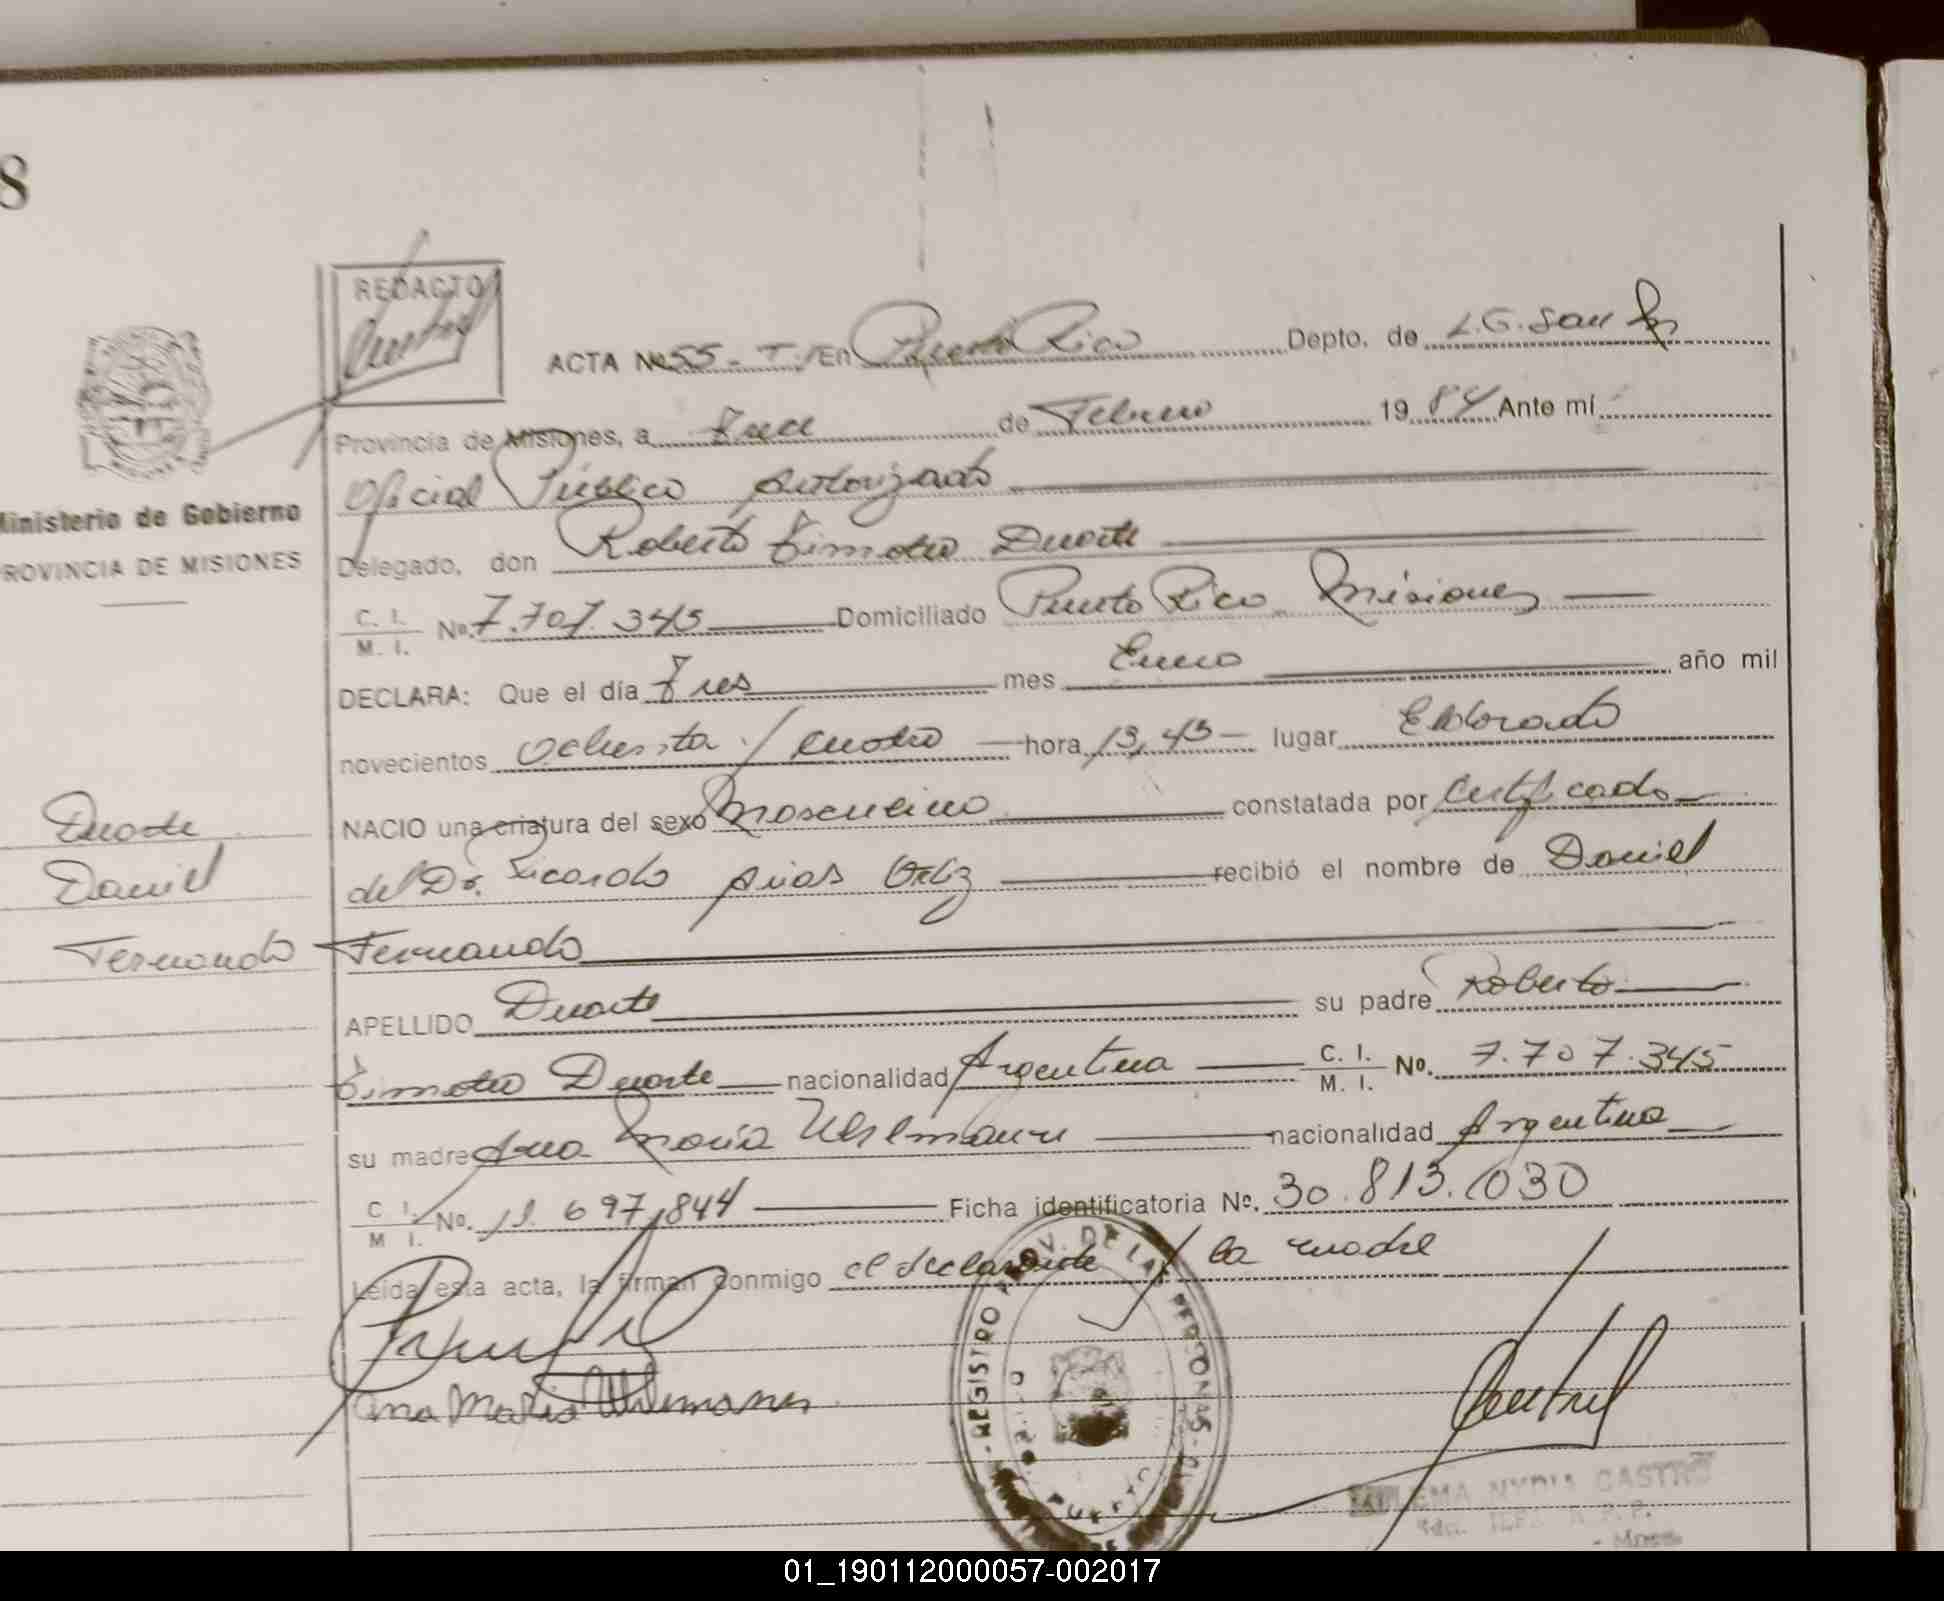 8
REDACTO
ACTA Nº 55 - T. / En Puerto Rico Depto. de L.G. San
Provincia de Misiones, a Trece de Febrero 1984 Ante mí
Oficial Público Autorizado
Ministerio de Gobierno
PROVINCIA DE MISIONES
Delegado, don Roberto Timoteo Duarte
C. I. M. I. Nº. 7.707.345 Domiciliado Puerto Rico Misiones
DECLARA: Que el día Tres mes Enero año mil
novecientos ochenta y cuatro hora 13,45 lugar Eldorado
NACIO una criatura del sexo Masculino constatada por Certificado
del Dr. Ricardo Arias Ortiz recibió el nombre de Daniel
Fernando
Duarte
Daniel
Fernando
APELLIDO Duarte su padre Roberto
Timoteo Duarte nacionalidad Argentina C. I. M. I. Nº. 7.707.345
su madre Ana María Uhlmann nacionalidad Argentina
C. I. M. I. Nº. 11.697.844 Ficha identificatoria Nº. 30.813.030
Leída esta acta, la firman conmigo el declarante y la madre
Ana Maria Uhlmann
REGISTRO PROV. DE LAS PERSONAS
NYDIA CASTRO
01_190112000057-002017